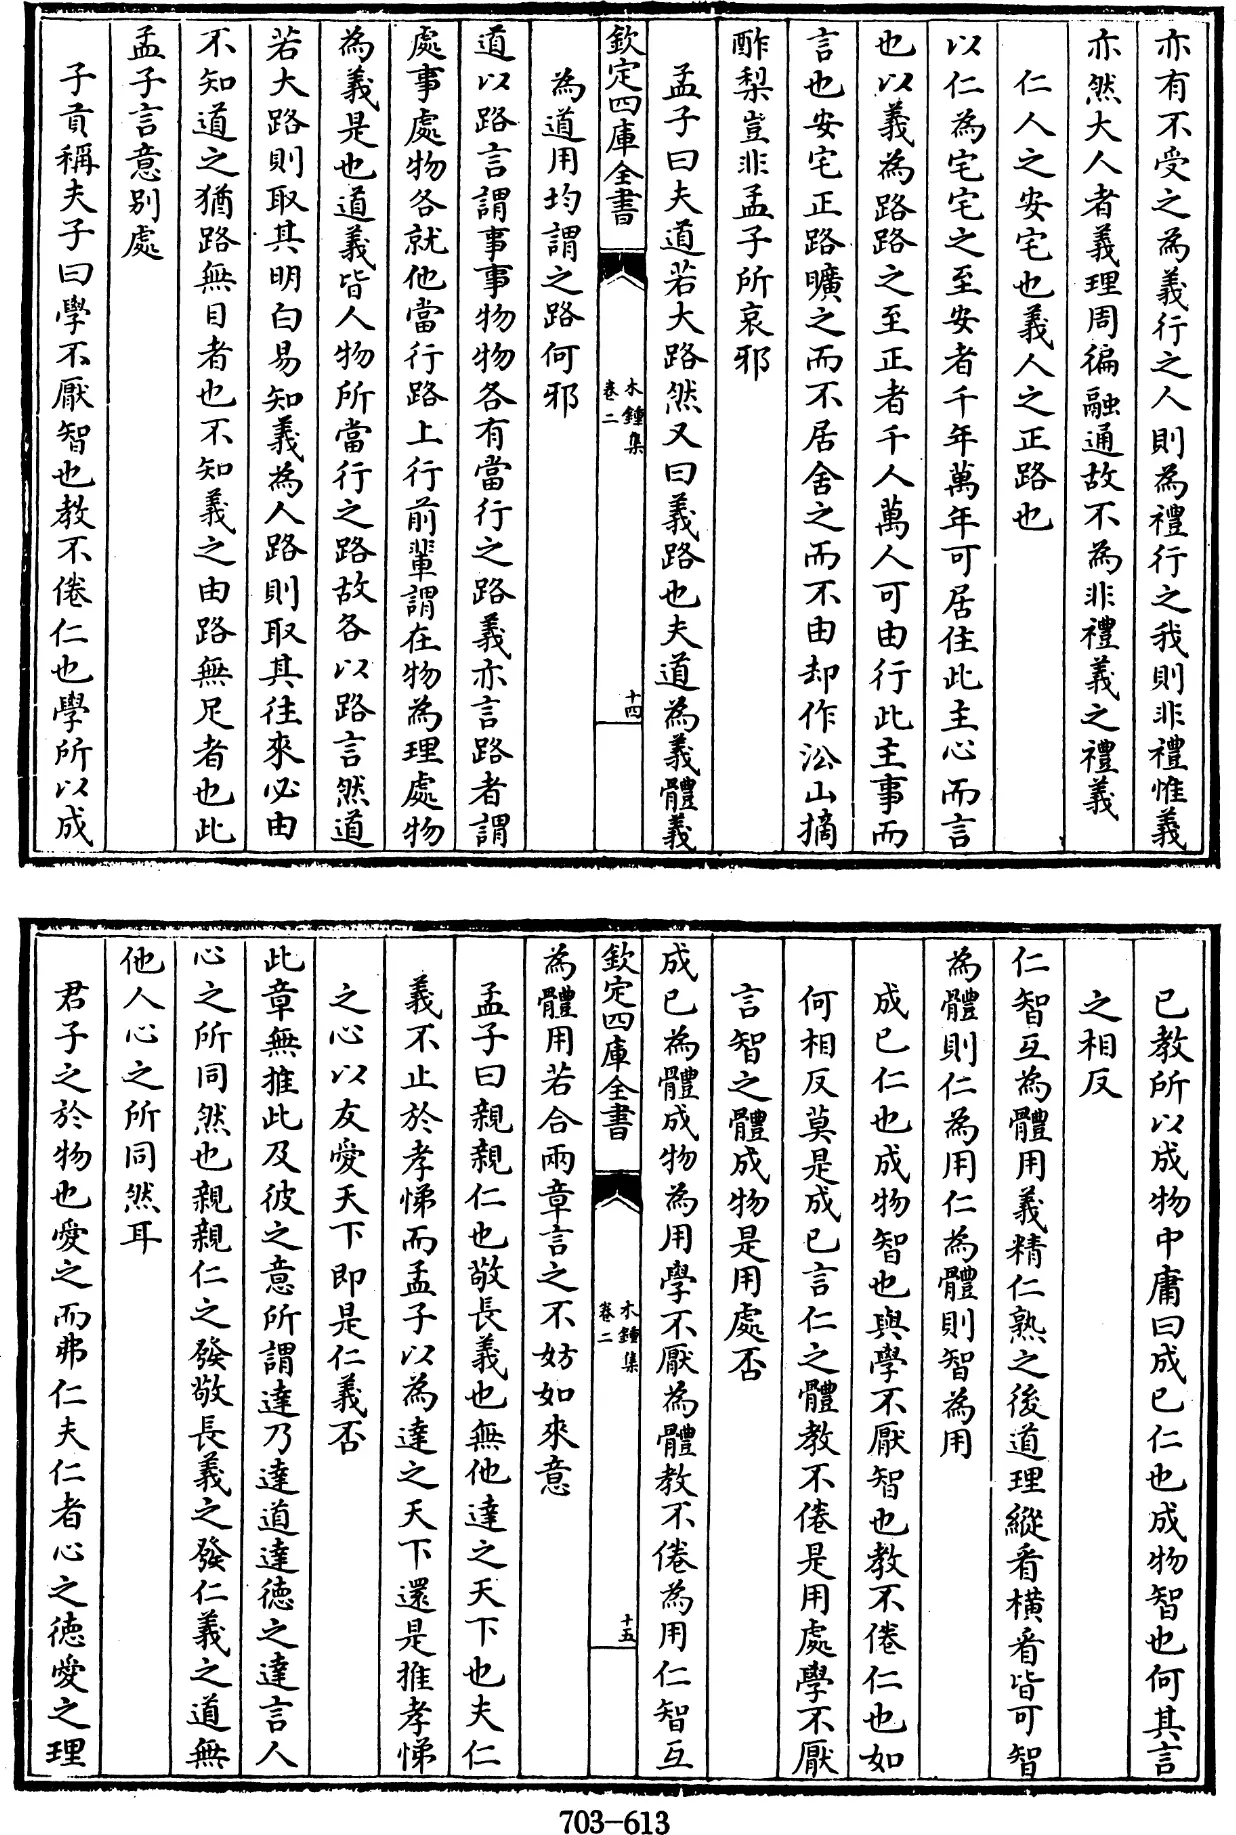 亦有不受之為義行之人則為禮行之我則非禮惟義
亦然大人者義理周徧融通故不為非禮義之禮義
仁人之安宅也義人之正路也
以仁為宅宅之至安者千年萬年可居住此主心而言
也以義為路路之至正者千人萬人可由行此主事而
言也安宅正路曠之而不居舍之而不由却作沿山摘
酢梨豈非孟子所哀邪
孟子曰夫道若大路然又曰義路也夫道為義體義
欽定四庫全書
木鍾集
卷二
十四
為道用均謂之路何邪
道以路言謂事事物物各有當行之路義亦言路者謂
處事處物各就他當行路上行前輩謂在物為理處物
為義是也道義皆人物所當行之路故各以路言然道
若大路則取其明白易知義為人路則取其往來必由
不知道之猶路無目者也不知義之由路無足者也此
孟子言意別處
子貢稱夫子曰學不厭智也教不倦仁也學所以成
已教所以成物中庸曰成已仁也成物智也何其言
之相反
仁智互為體用義精仁熟之後道理縱看橫看皆可智
為體則仁為用仁為體則智為用
成已仁也成物智也與學不厭智也教不倦仁也如
何相反莫是成已言仁之體教不倦是用處學不厭
言智之體成物是用處否
成已為體成物為用學不厭為體教不倦為用仁智互
欽定四庫全書
木鍾集
卷二
十五
為體用若合兩章言之不妨如來意
孟子曰親親仁也敬長義也無他達之天下也夫仁
義不止於孝悌而孟子以為達之天下還是推孝悌
之心以友愛天下即是仁義否
此章無推此及彼之意所謂達乃達道達德之達言人
心之所同然也親親仁之發敬長義之發仁義之道無
他人心之所同然耳
君子之於物也愛之而弗仁夫仁者心之德愛之理
703-613